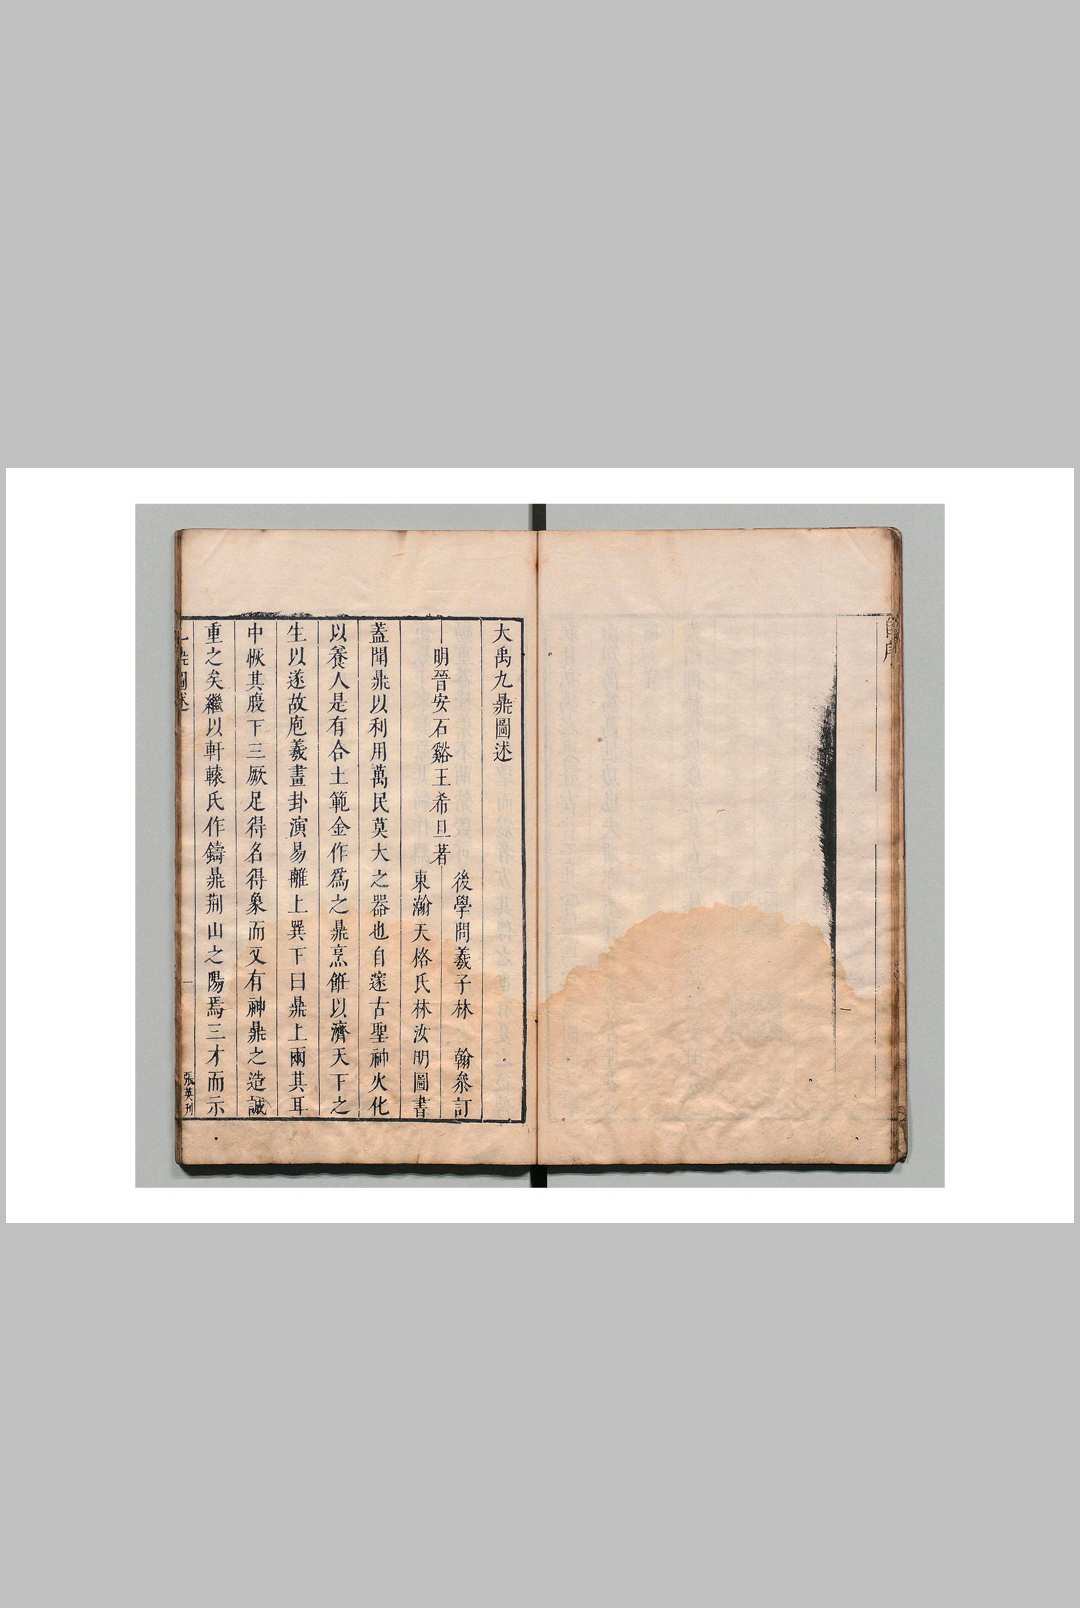 大禹九鼎圖述
明晉安石谿王希旦著
後學問羲子林　翰叅訂
東瀚天格氏林汝明圖書
蓋聞鼎以利用萬民莫大之器也自邃古聖神火化
以養人是有合土範金作爲之鼎烹飪以濟天下之
生以遂故庖羲畫卦演易離上巽下曰鼎上兩其耳
中恢其腹下三厥足得名得象而又有神鼎之造誠
重之矣繼以軒轅氏作鑄鼎荊山之陽焉三才而示
圖述
一
張英刊
序